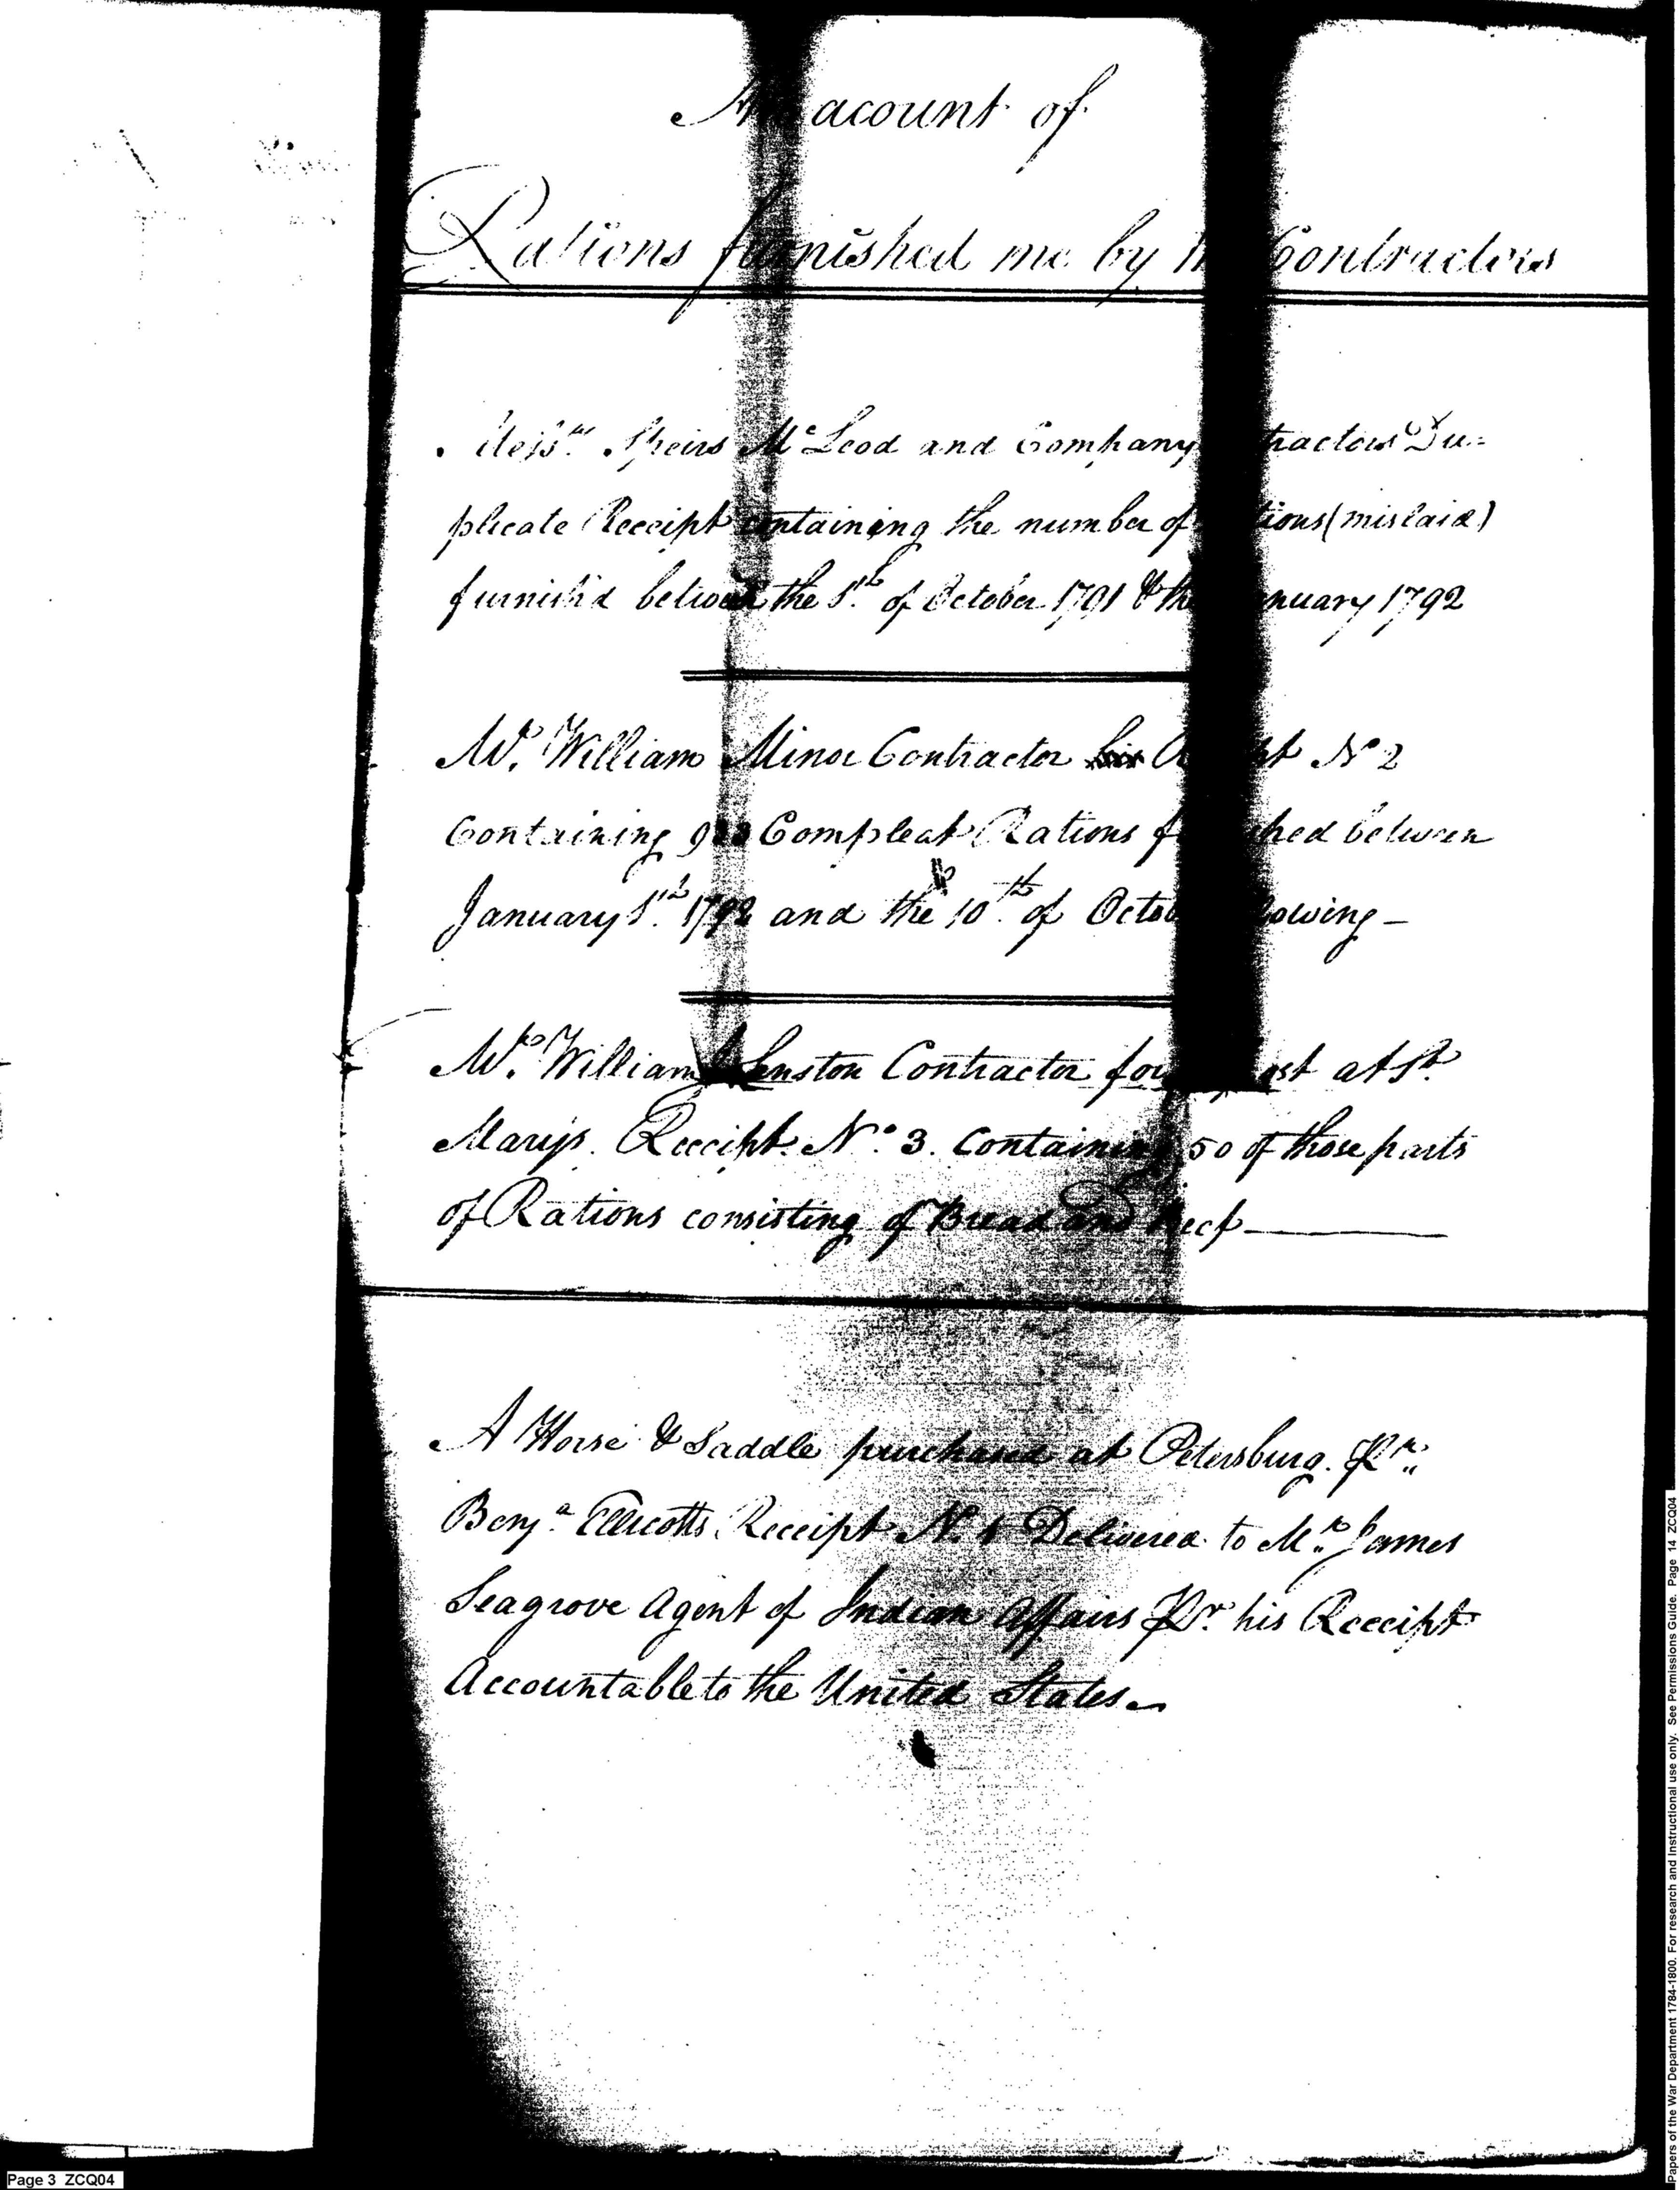 An acount of
Rations furnished me by Contractors
Mess.rs Speirs McLeod and Company Du-
plicate Receipt containing the number of (mislaid)
furnish'd between the 1st of October 1791 & the January 1792
Mr. William Minor Contractor No 2
Containing Compleat Rations between
January 1st 1792 and the 10th of
Mr. William Contractor at St.
Marys. Receipt. No. 3. Containing 50 of those parts
of Rations consisting of Bread and Beef
A Horse & Saddle purchased at Petersburg. Pr.
Benja. Ellicotts Receipt No. 1 Delivered to Mr. James
Seagrove Agent of Indian Affairs Pr. his Receipt
Accountable to the United States.
Page 3 ZCQ04
Papers of the War Department 1784-1800. For research and Instructional use only. See Permissions Guide. Page 14 ZCQ04